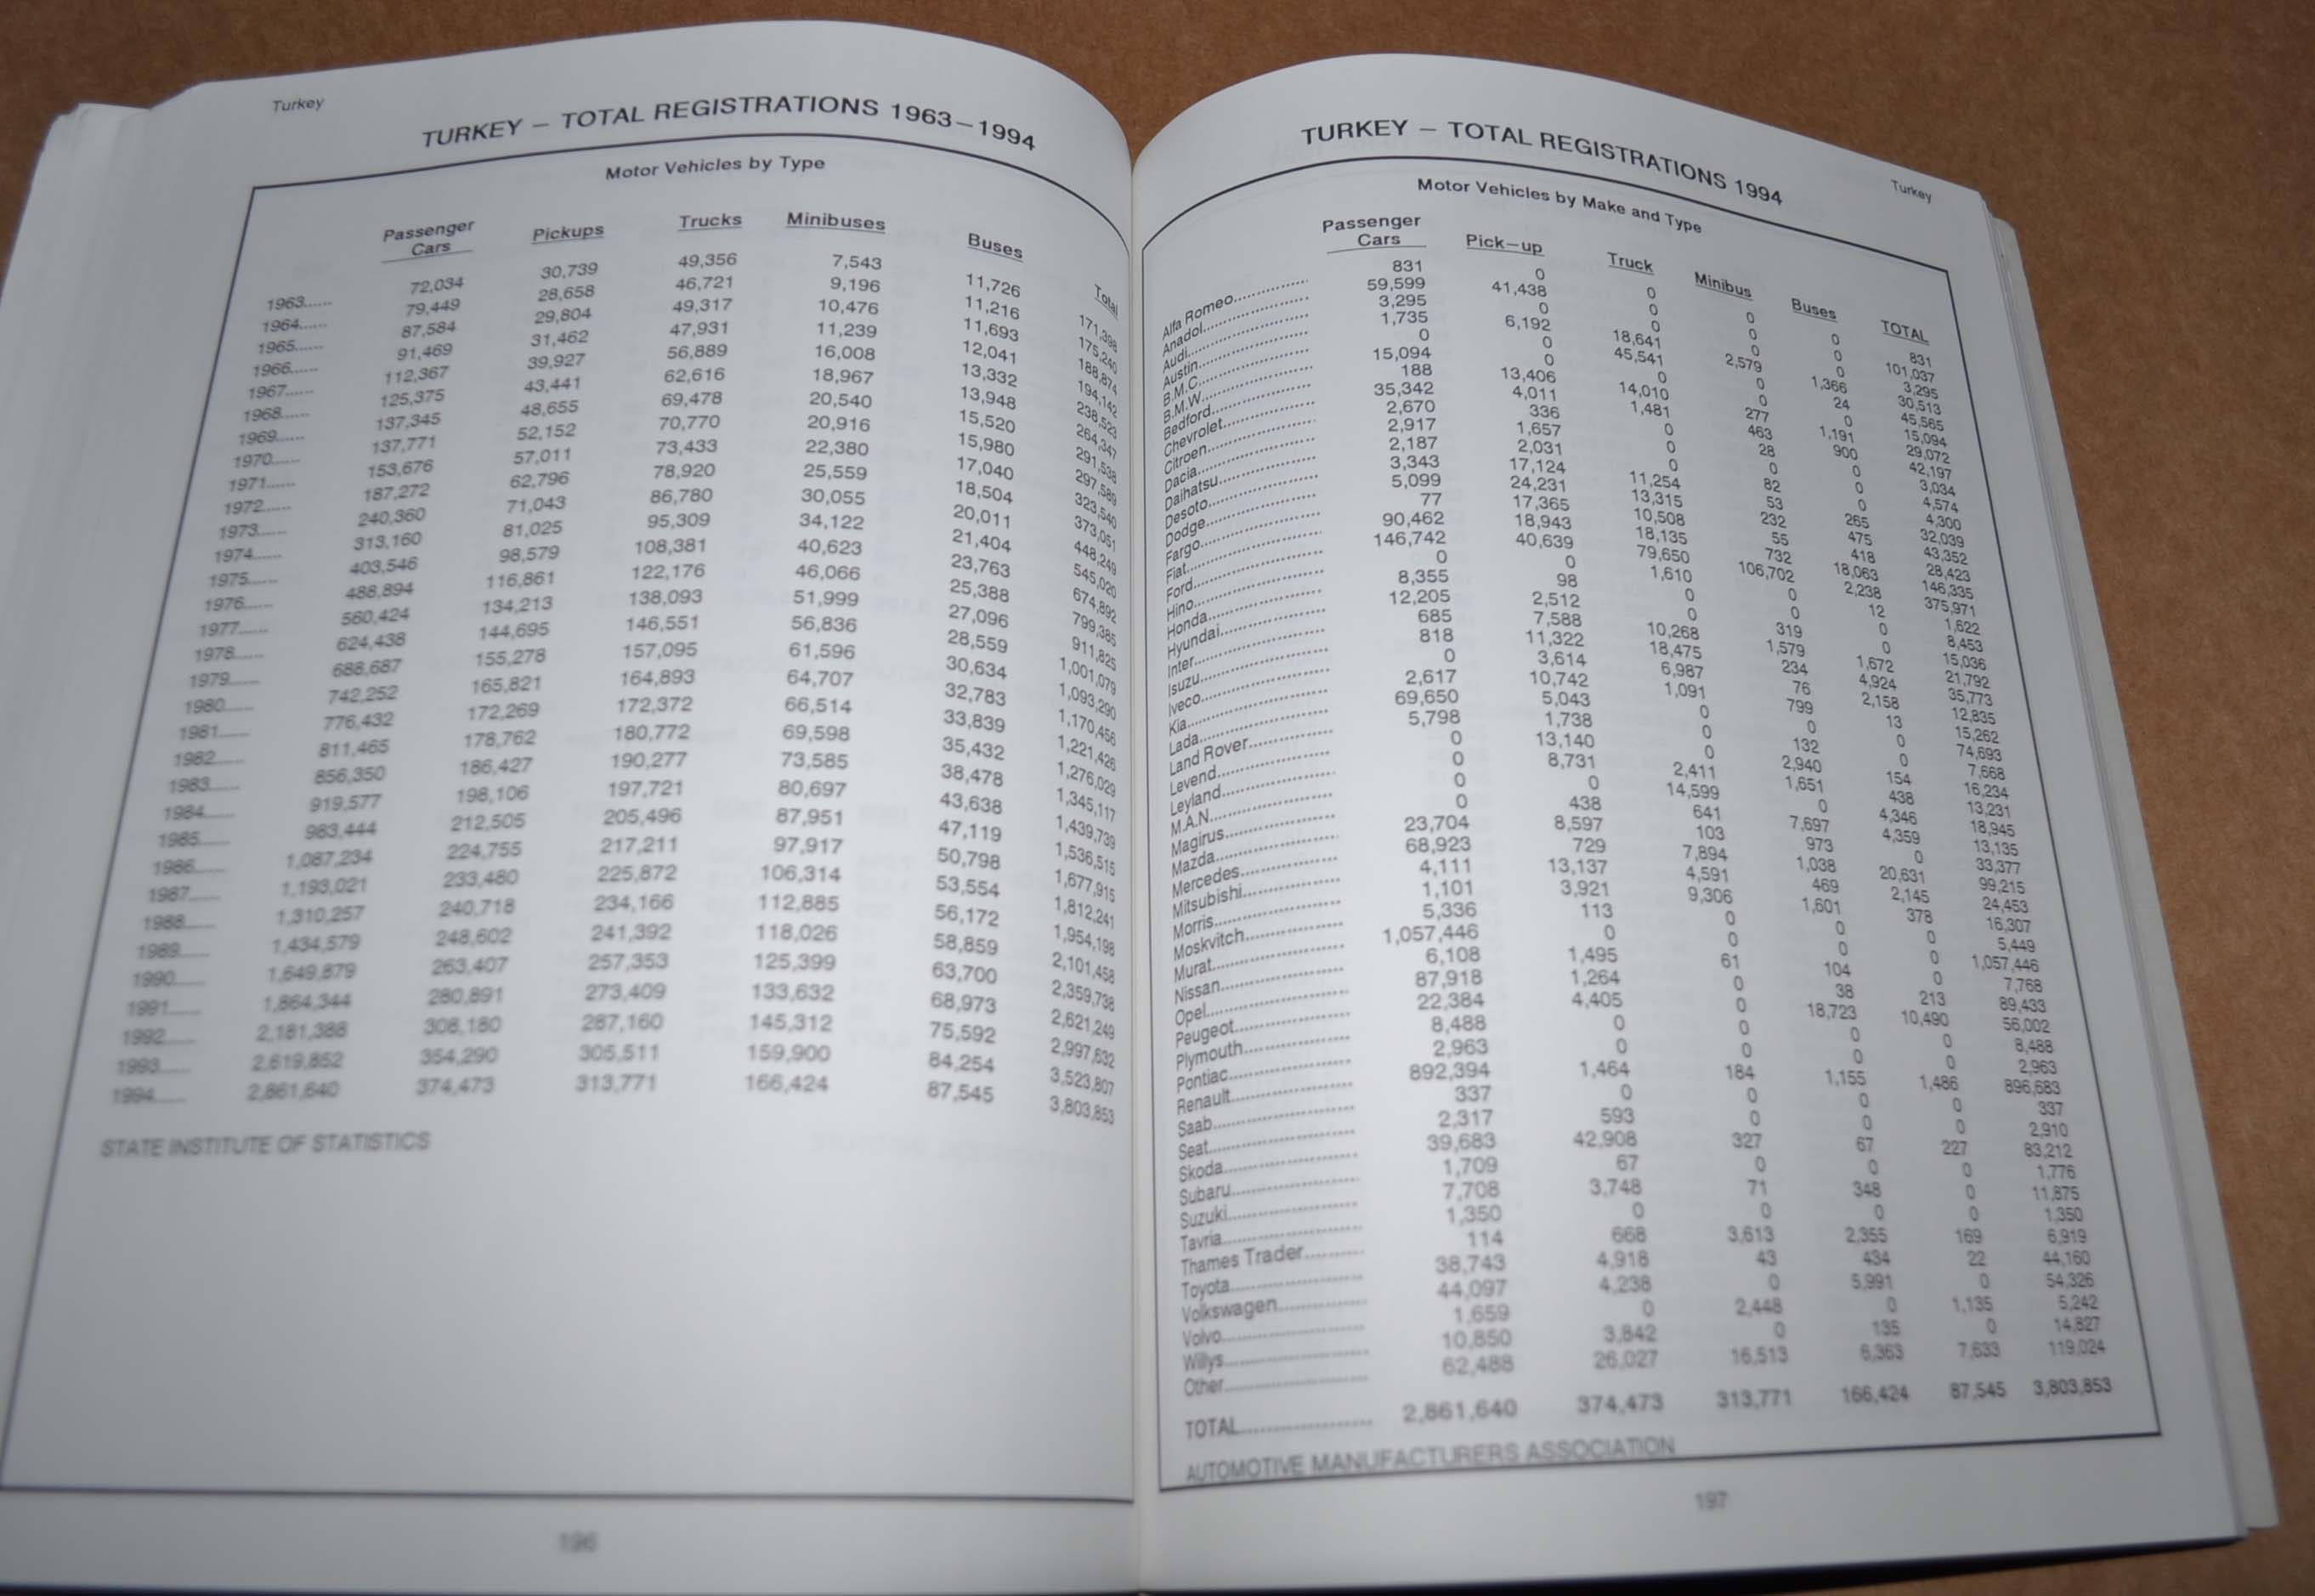 Turkey
TURKEY – TOTAL REGISTRATIONS 1963–1994
Motor Vehicles by Type
Passenger Cars Pickups Trucks Minibuses Buses Total
1963...... 72,034 30,739 49,356 7,543 11,726 171,398
1964...... 79,449 28,658 46,721 9,196 11,216 175,240
1965...... 87,584 29,804 49,317 10,476 11,693 188,874
1966...... 91,469 31,462 47,931 11,239 12,041 194,142
1967...... 112,367 39,927 56,889 16,008 13,332 238,523
1968...... 125,375 43,441 62,616 18,967 13,948 264,347
1969...... 137,345 48,655 69,478 20,540 15,520 291,538
1970...... 137,771 52,152 70,770 20,916 15,980 297,589
1971...... 153,676 57,011 73,433 22,380 17,040 323,540
1972...... 187,272 62,796 78,920 25,559 18,504 373,051
1973...... 240,360 71,043 86,780 30,055 20,011 448,249
1974...... 313,160 81,025 95,309 34,122 21,404 545,020
1975...... 403,546 98,579 108,381 40,623 23,763 674,892
1976...... 488,894 116,861 122,176 46,066 25,388 799,385
1977...... 560,424 134,213 138,093 51,999 27,096 911,825
1978...... 624,438 144,695 146,551 56,836 28,559 1,001,079
1979...... 688,687 155,278 157,095 61,596 30,634 1,093,290
1980...... 742,252 165,821 164,893 64,707 32,783 1,170,456
1981...... 776,432 172,269 172,372 66,514 33,839 1,221,426
1982...... 811,465 178,762 180,772 69,598 35,432 1,276,029
1983...... 856,350 186,427 190,277 73,585 38,478 1,345,117
1984...... 919,577 198,106 197,721 80,697 43,638 1,439,739
1985...... 983,444 212,505 205,496 87,951 47,119 1,536,515
1986...... 1,087,234 224,755 217,211 97,917 50,798 1,677,915
1987...... 1,193,021 233,480 225,872 106,314 53,554 1,812,241
1988...... 1,310,257 240,718 234,166 112,885 56,172 1,954,198
1989...... 1,434,579 248,602 241,392 118,026 58,859 2,101,458
1990...... 1,649,879 263,407 257,353 125,399 63,700 2,359,738
1991...... 1,864,344 280,891 273,409 133,632 68,973 2,621,249
1992...... 2,181,388 308,180 287,160 145,312 75,592 2,997,632
1993...... 2,619,852 354,290 305,511 159,900 84,254 3,523,807
1994...... 2,861,640 374,473 313,771 166,424 87,545 3,803,853
STATE INSTITUTE OF STATISTICS
196
Turkey
TURKEY – TOTAL REGISTRATIONS 1994
Motor Vehicles by Make and Type
Passenger Cars Pick–up Truck Minibus Buses TOTAL
Alfa Romeo...... 831 0 0 0 0 831
Anadol...... 59,599 41,438 0 0 0 101,037
Audi...... 3,295 0 0 0 0 3,295
Austin...... 1,735 6,192 18,641 2,579 1,366 30,513
B.M.C...... 0 0 45,541 0 24 45,565
B.M.W...... 15,094 0 0 0 0 15,094
Bedford...... 188 13,406 14,010 277 1,191 29,072
Chevrolet...... 35,342 4,011 1,481 463 900 42,197
Citroen...... 2,670 336 0 28 0 3,034
Dacia...... 2,917 1,657 0 0 0 4,574
Daihatsu...... 2,187 2,031 0 82 0 4,300
Desoto...... 3,343 17,124 11,254 53 265 32,039
Dodge...... 5,099 24,231 13,315 232 475 43,352
Fargo...... 77 17,365 10,508 55 418 28,423
Fiat...... 90,462 18,943 18,135 732 18,063 146,335
Ford...... 146,742 40,639 79,650 106,702 2,238 375,971
Hino...... 0 0 1,610 0 12 1,622
Honda...... 8,355 98 0 0 0 8,453
Hyundai...... 12,205 2,512 0 319 0 15,036
Inter...... 685 7,588 10,268 1,579 1,672 21,792
Isuzu...... 818 11,322 18,475 234 4,924 35,773
Iveco...... 0 3,614 6,987 76 2,158 12,835
Kia...... 2,617 10,742 1,091 799 13 15,262
Lada...... 69,650 5,043 0 0 0 74,693
Land Rover...... 5,798 1,738 0 132 0 7,668
Levend...... 0 13,140 0 2,940 154 16,234
Leyland...... 0 8,731 2,411 1,651 438 13,231
M.A.N...... 0 0 14,599 0 4,346 18,945
Magirus...... 0 438 641 7,697 4,359 13,135
Mazda...... 23,704 8,597 103 973 0 33,377
Mercedes...... 68,923 729 7,894 1,038 20,631 99,215
Mitsubishi...... 4,111 13,137 4,591 469 2,145 24,453
Morris...... 1,101 3,921 9,306 1,601 378 16,307
Moskvitch...... 5,336 113 0 0 0 5,449
Murat...... 1,057,446 0 0 0 0 1,057,446
Nissan...... 6,108 1,495 61 104 0 7,768
Opel...... 87,918 1,264 0 38 213 89,433
Peugeot...... 22,384 4,405 0 18,723 10,490 56,002
Plymouth...... 8,488 0 0 0 0 8,488
Pontiac...... 2,963 0 0 0 0 2,963
Renault...... 892,394 1,464 184 1,155 1,486 896,683
Saab...... 337 0 0 0 0 337
Seat...... 2,317 593 0 0 0 2,910
Skoda...... 39,683 42,908 327 67 227 83,212
Subaru...... 1,709 67 0 0 0 1,776
Suzuki...... 7,708 3,748 71 348 0 11,875
Tavria...... 1,350 0 0 0 0 1,350
Thames Trader...... 114 668 3,613 2,355 169 6,919
Toyota...... 38,743 4,918 43 434 22 44,160
Volkswagen...... 44,097 4,238 0 5,991 0 54,326
Volvo...... 1,659 0 2,448 0 1,135 5,242
Willys...... 10,850 3,842 0 135 0 14,827
Other...... 62,488 26,027 16,513 6,363 7,633 119,024
TOTAL...... 2,861,640 374,473 313,771 166,424 87,545 3,803,853
AUTOMOTIVE MANUFACTURERS ASSOCIATION
197